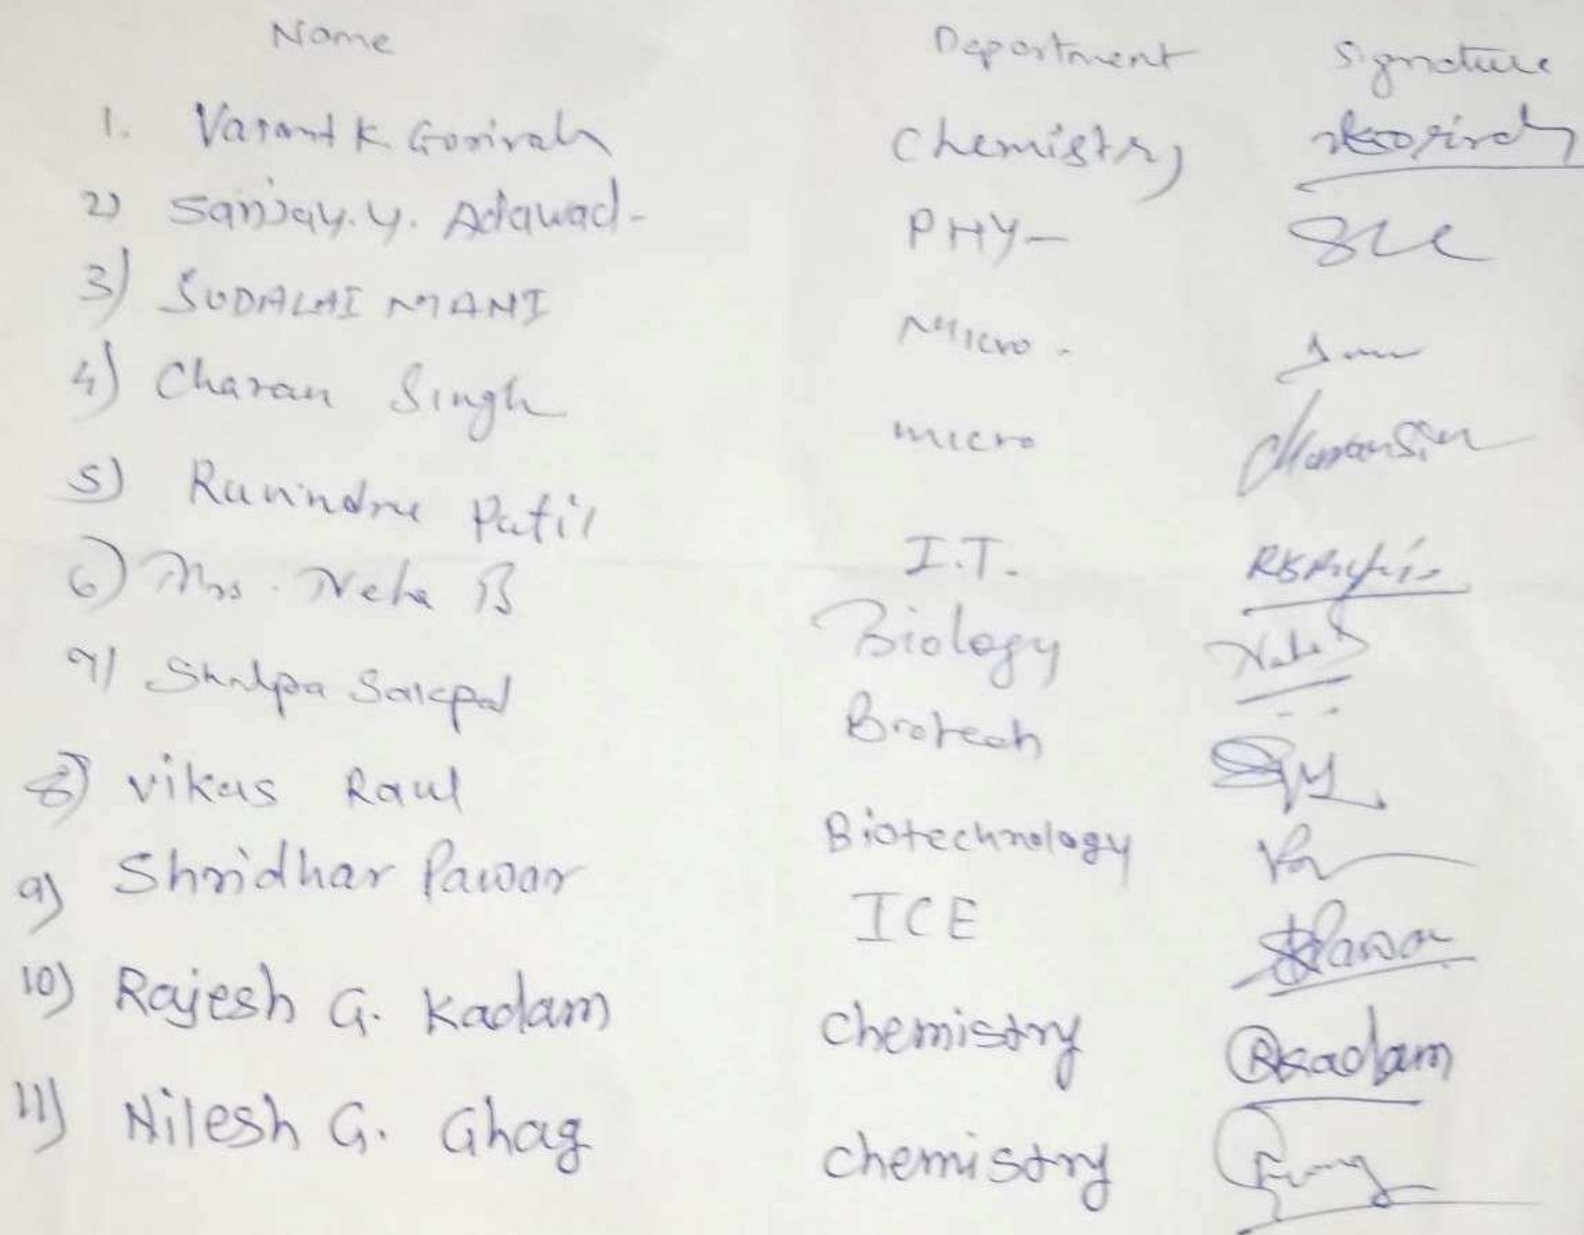 Name Department Signature
1. Vasant K. Gorivale Chemistry
2) Sanjay. Y. Adawad- PHY-
3) SUDALAI MANI Micro-
4) Charan Singh micro Charansin
5) Ravindra Patil I.T. RSPatil
6) Mrs. Neha B Biology NehaB
7) Shilpa Sarepal Biotech
8) vikas Raul Biotechnology
9) Shridhar Pawar ICE SPawar
10) Rajesh G. Kadam Chemistry Rkadam
11) Nilesh G. Ghag chemistry